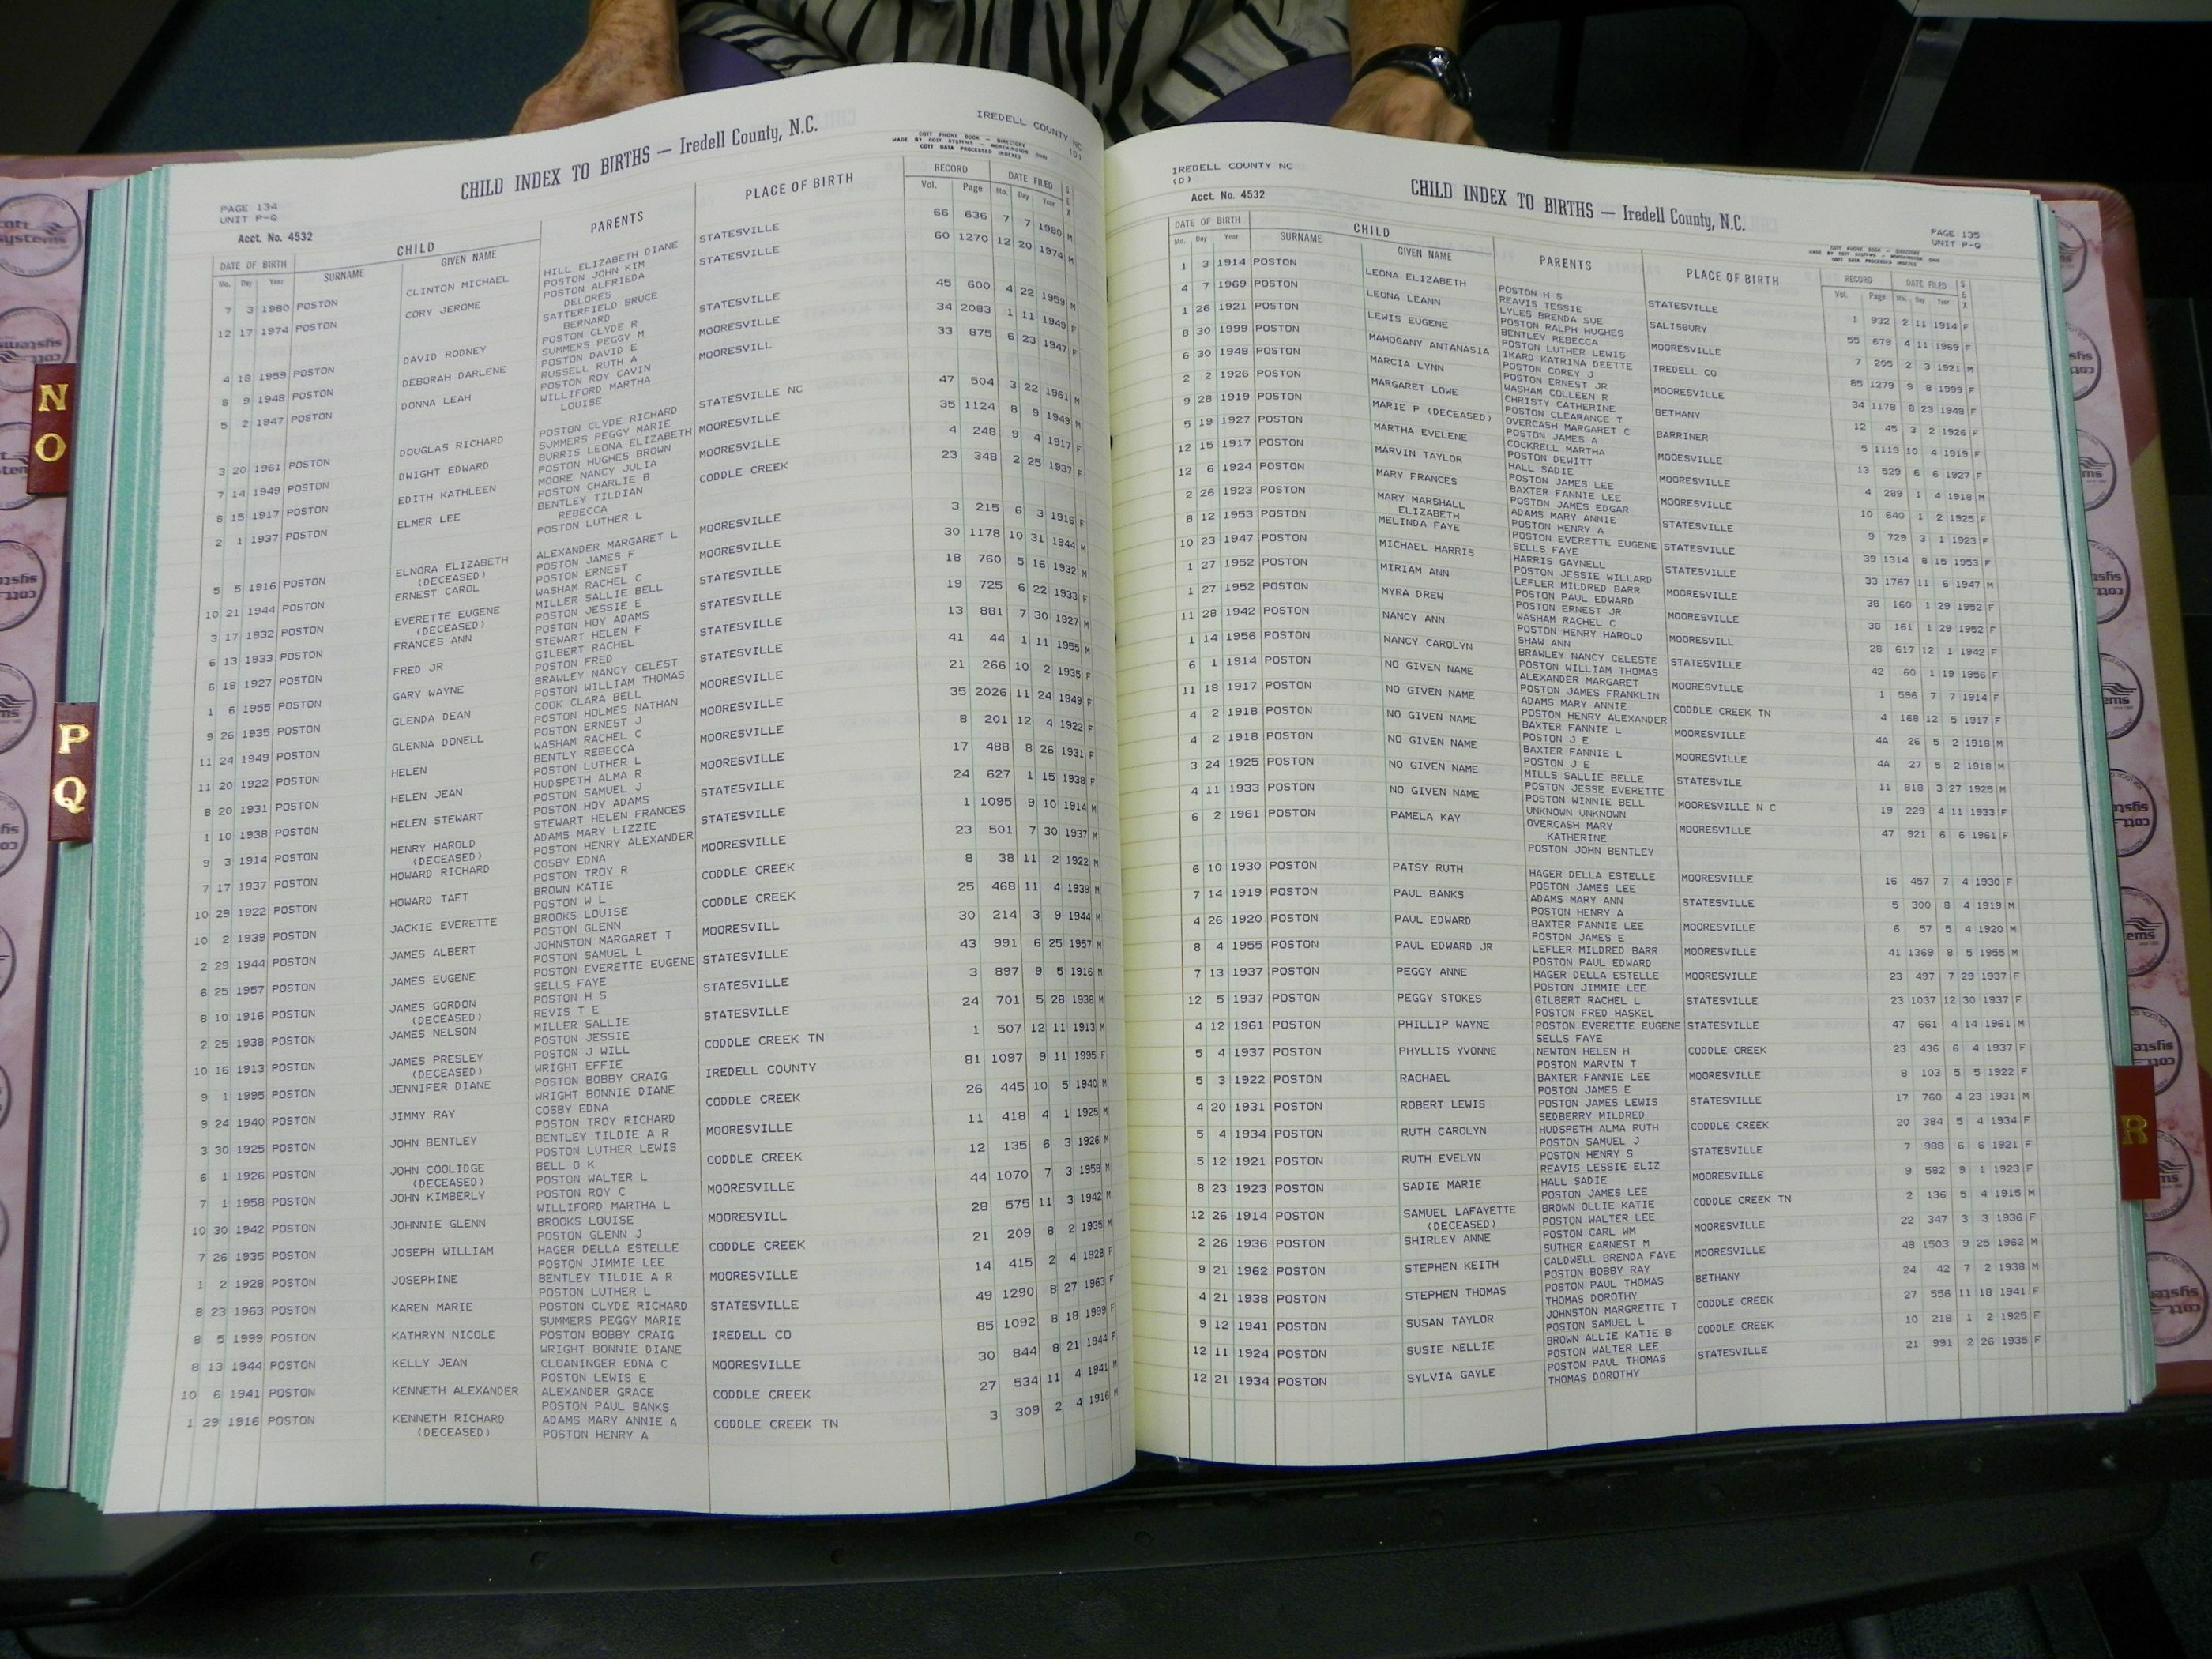 CHILD INDEX TO BIRTHS — Iredell County, N.C.
IREDELL COUNTY NC
(D)
COTT PHONE BOOK — DIRECTORY
MADE BY COTT SYSTEMS — WORTHINGTON OHIO
COTT DATA PROCESSED INDEXES
PAGE 134
UNIT P-Q
Acct. No. 4532
DATE OF BIRTH CHILD PARENTS PLACE OF BIRTH RECORD DATE FILED SEX
Mo. Day Year SURNAME GIVEN NAME Vol. Page Mo. Day Year
7 3 1980 POSTON CLINTON MICHAEL HILL ELIZABETH DIANE STATESVILLE 66 636 7 7 1980 M
POSTON JOHN KIM
12 17 1974 POSTON CORY JEROME POSTON ALFRIEDA STATESVILLE 60 1270 12 20 1974 M
DELORES
SATTERFIELD BRUCE
BERNARD
4 18 1959 POSTON DAVID RODNEY POSTON CLYDE R STATESVILLE 45 600 4 22 1959 M
SUMMERS PEGGY M
8 9 1948 POSTON DEBORAH DARLENE POSTON DAVID E MOORESVILLE 34 2083 1 11 1949 F
RUSSELL RUTH A
5 2 1947 POSTON DONNA LEAH POSTON ROY CAVIN MOORESVILL 33 875 6 23 1947 F
WILLIFORD MARTHA
LOUISE
3 20 1961 POSTON DOUGLAS RICHARD POSTON CLYDE RICHARD STATESVILLE NC 47 504 3 22 1961 M
SUMMERS PEGGY MARIE
7 14 1949 POSTON DWIGHT EDWARD BURRIS LEONA ELIZABETH MOORESVILLE 35 1124 8 9 1949 M
POSTON HUGHES BROWN
8 15 1917 POSTON EDITH KATHLEEN MOORE NANCY JULIA MOORESVILLE 4 248 9 4 1917 F
POSTON CHARLIE B
2 1 1937 POSTON ELMER LEE BENTLEY TILDIAN CODDLE CREEK 23 348 2 25 1937 F
REBECCA
POSTON LUTHER L
5 5 1916 POSTON ELNORA ELIZABETH ALEXANDER MARGARET L MOORESVILLE 3 215 6 3 1916 F
(DECEASED) POSTON JAMES F
10 21 1944 POSTON ERNEST CAROL POSTON ERNEST MOORESVILLE 30 1178 10 31 1944 M
WASHAM RACHEL C
3 17 1932 POSTON EVERETTE EUGENE MILLER SALLIE BELL STATESVILLE 18 760 5 16 1932 M
(DECEASED) POSTON JESSIE E
6 13 1933 POSTON FRANCES ANN POSTON HOY ADAMS STATESVILLE 19 725 6 22 1933 F
STEWART HELEN F
6 18 1927 POSTON FRED JR GILBERT RACHEL STATESVILLE 13 881 7 30 1927 M
POSTON FRED
1 6 1955 POSTON GARY WAYNE BRAWLEY NANCY CELEST STATESVILLE 41 44 1 11 1955 M
POSTON WILLIAM THOMAS
9 26 1935 POSTON GLENDA DEAN COOK CLARA BELL MOORESVILLE 21 266 10 2 1935 F
POSTON HOLMES NATHAN
11 24 1949 POSTON GLENNA DONELL POSTON ERNEST J MOORESVILLE 35 2026 11 24 1949 F
WASHAM RACHEL C
11 20 1922 POSTON HELEN BENTLY REBECCA MOORESVILLE 8 201 12 4 1922 F
POSTON LUTHER L
8 20 1931 POSTON HELEN JEAN HUDSPETH ALMA R MOORESVILLE 17 488 8 26 1931 F
POSTON SAMUEL J
1 10 1938 POSTON HELEN STEWART POSTON HOY ADAMS STATESVILLE 24 627 1 15 1938 F
STEWART HELEN FRANCES
9 3 1914 POSTON HENRY HAROLD ADAMS MARY LIZZIE STATESVILLE 1 1095 9 10 1914 M
(DECEASED) POSTON HENRY ALEXANDER
7 17 1937 POSTON HOWARD RICHARD COSBY EDNA MOORESVILLE 23 501 7 30 1937 M
POSTON TROY R
10 29 1922 POSTON HOWARD TAFT BROWN KATIE CODDLE CREEK 8 38 11 2 1922 M
POSTON W L
10 2 1939 POSTON JACKIE EVERETTE BROOKS LOUISE CODDLE CREEK 25 468 11 4 1939 M
POSTON GLENN
2 29 1944 POSTON JAMES ALBERT JOHNSTON MARGARET T MOORESVILL 30 214 3 9 1944 M
POSTON SAMUEL L
6 25 1957 POSTON JAMES EUGENE POSTON EVERETTE EUGENE STATESVILLE 43 991 6 25 1957 M
SELLS FAYE
8 10 1916 POSTON JAMES GORDON POSTON H S STATESVILLE 3 897 9 5 1916 M
(DECEASED) REVIS T E
2 25 1938 POSTON JAMES NELSON MILLER SALLIE STATESVILLE 24 701 5 28 1938 M
POSTON JESSIE
10 16 1913 POSTON JAMES PRESLEY POSTON J WILL CODDLE CREEK TN 1 507 12 11 1913 M
(DECEASED) WRIGHT EFFIE
9 1 1995 POSTON JENNIFER DIANE POSTON BOBBY CRAIG IREDELL COUNTY 81 1097 9 11 1995 F
WRIGHT BONNIE DIANE
9 24 1940 POSTON JIMMY RAY COSBY EDNA CODDLE CREEK 26 445 10 5 1940 M
POSTON TROY RICHARD
3 30 1925 POSTON JOHN BENTLEY BENTLEY TILDIE A R MOORESVILLE 11 418 4 1 1925 M
POSTON LUTHER LEWIS
6 1 1926 POSTON JOHN COOLIDGE BELL O K CODDLE CREEK 12 135 6 3 1926 M
(DECEASED) POSTON WALTER L
7 1 1958 POSTON JOHN KIMBERLY POSTON ROY C MOORESVILLE 44 1070 7 3 1958 M
WILLIFORD MARTHA L
10 30 1942 POSTON JOHNNIE GLENN BROOKS LOUISE MOORESVILL 28 575 11 3 1942 M
POSTON GLENN J
7 26 1935 POSTON JOSEPH WILLIAM HAGER DELLA ESTELLE CODDLE CREEK 21 209 8 2 1935 M
POSTON JIMMIE LEE
1 2 1928 POSTON JOSEPHINE BENTLEY TILDIE A R MOORESVILLE 14 415 2 4 1928 F
POSTON LUTHER L
8 23 1963 POSTON KAREN MARIE POSTON CLYDE RICHARD STATESVILLE 49 1290 8 27 1963 F
SUMMERS PEGGY MARIE
8 5 1999 POSTON KATHRYN NICOLE POSTON BOBBY CRAIG IREDELL CO 85 1092 8 18 1999 F
WRIGHT BONNIE DIANE
8 13 1944 POSTON KELLY JEAN CLOANINGER EDNA C MOORESVILLE 30 844 8 21 1944 F
POSTON LEWIS E
10 6 1941 POSTON KENNETH ALEXANDER ALEXANDER GRACE CODDLE CREEK 27 534 11 4 1941 M
POSTON PAUL BANKS
1 29 1916 POSTON KENNETH RICHARD ADAMS MARY ANNIE A CODDLE CREEK TN 3 309 2 4 1916 M
(DECEASED) POSTON HENRY A
IREDELL COUNTY NC
(D)
Acct. No. 4532
CHILD INDEX TO BIRTHS — Iredell County, N.C.
PAGE 135
UNIT P-Q
COTT PHONE BOOK — DIRECTORY
MADE BY COTT SYSTEMS — WORTHINGTON OHIO
COTT DATA PROCESSED INDEXES
DATE OF BIRTH CHILD PARENTS PLACE OF BIRTH RECORD DATE FILED SEX
Mo. Day Year SURNAME GIVEN NAME Vol. Page Mo. Day Year
1 3 1914 POSTON LEONA ELIZABETH POSTON H S STATESVILLE 1 932 2 11 1914 F
REAVIS TESSIE
4 7 1969 POSTON LEONA LEANN LYLES BRENDA SUE SALISBURY 55 679 4 11 1969 F
POSTON RALPH HUGHES
1 26 1921 POSTON LEWIS EUGENE BENTLEY REBECCA MOORESVILLE 7 205 2 3 1921 M
POSTON LUTHER LEWIS
8 30 1999 POSTON MAHOGANY ANTANASIA IKARD KATRINA DEETTE IREDELL CO 85 1279 9 8 1999 F
POSTON COREY J
6 30 1948 POSTON MARCIA LYNN POSTON ERNEST JR MOORESVILLE 34 1178 8 23 1948 F
WASHAM COLLEEN R
2 2 1926 POSTON MARGARET LOWE CHRISTY CATHERINE BETHANY 12 45 3 2 1926 F
POSTON CLEARANCE T
9 28 1919 POSTON MARIE P (DECEASED) OVERCASH MARGARET C BARRINER 5 1119 10 4 1919 F
POSTON JAMES A
5 19 1927 POSTON MARTHA EVELENE COCKRELL MARTHA MOOESVILLE 13 529 6 6 1927 F
POSTON DEWITT
12 15 1917 POSTON MARVIN TAYLOR HALL SADIE MOORESVILLE 4 289 1 4 1918 M
POSTON JAMES LEE
12 6 1924 POSTON MARY FRANCES BAXTER FANNIE LEE MOORESVILLE 10 640 1 2 1925 F
POSTON JAMES EDGAR
2 26 1923 POSTON MARY MARSHALL ADAMS MARY ANNIE STATESVILLE 9 729 3 1 1923 F
ELIZABETH POSTON HENRY A
8 12 1953 POSTON MELINDA FAYE POSTON EVERETTE EUGENE STATESVILLE 39 1314 8 15 1953 F
SELLS FAYE
10 23 1947 POSTON MICHAEL HARRIS HARRIS GAYNELL STATESVILLE 33 1767 11 6 1947 M
POSTON JESSIE WILLARD
1 27 1952 POSTON MIRIAM ANN LEFLER MILDRED BARR MOORESVILLE 38 160 1 29 1952 F
POSTON PAUL EDWARD
1 27 1952 POSTON MYRA DREW POSTON ERNEST JR MOORESVILLE 38 161 1 29 1952 F
WASHAM RACHEL C
11 28 1942 POSTON NANCY ANN POSTON HENRY HAROLD MOORESVILL 28 617 12 1 1942 F
SHAW ANN
1 14 1956 POSTON NANCY CAROLYN BRAWLEY NANCY CELESTE STATESVILLE 42 60 1 19 1956 F
POSTON WILLIAM THOMAS
6 1 1914 POSTON NO GIVEN NAME ALEXANDER MARGARET MOORESVILLE 1 596 7 7 1914 F
POSTON JAMES FRANKLIN
11 18 1917 POSTON NO GIVEN NAME ADAMS MARY ANNIE CODDLE CREEK TN 4 168 12 5 1917 F
POSTON HENRY ALEXANDER
4 2 1918 POSTON NO GIVEN NAME BAXTER FANNIE L MOORESVILLE 4A 26 5 2 1918 M
POSTON J E
4 2 1918 POSTON NO GIVEN NAME BAXTER FANNIE L MOORESVILLE 4A 27 5 2 1918 M
POSTON J E
3 24 1925 POSTON NO GIVEN NAME MILLS SALLIE BELLE STATESVILE 11 818 3 27 1925 M
POSTON JESSE EVERETTE
4 11 1933 POSTON NO GIVEN NAME POSTON WINNIE BELL MOORESVILLE N C 19 229 4 11 1933 F
UNKNOWN UNKNOWN
6 2 1961 POSTON PAMELA KAY OVERCASH MARY MOORESVILLE 47 921 6 6 1961 F
KATHERINE
POSTON JOHN BENTLEY
6 10 1930 POSTON PATSY RUTH HAGER DELLA ESTELLE MOORESVILLE 16 457 7 4 1930 F
POSTON JAMES LEE
7 14 1919 POSTON PAUL BANKS ADAMS MARY ANN STATESVILLE 5 300 8 4 1919 M
POSTON HENRY A
4 26 1920 POSTON PAUL EDWARD BAXTER FANNIE LEE MOORESVILLE 6 57 5 4 1920 M
POSTON JAMES E
8 4 1955 POSTON PAUL EDWARD JR LEFLER MILDRED BARR MOORESVILLE 41 1369 8 5 1955 M
POSTON PAUL EDWARD
7 13 1937 POSTON PEGGY ANNE HAGER DELLA ESTELLE MOORESVILLE 23 497 7 29 1937 F
POSTON JIMMIE LEE
12 5 1937 POSTON PEGGY STOKES GILBERT RACHEL L STATESVILLE 23 1037 12 30 1937 F
POSTON FRED HASKEL
4 12 1961 POSTON PHILLIP WAYNE POSTON EVERETTE EUGENE STATESVILLE 47 661 4 14 1961 M
SELLS FAYE
5 4 1937 POSTON PHYLLIS YVONNE NEWTON HELEN H CODDLE CREEK 23 436 6 4 1937 F
POSTON MARVIN T
5 3 1922 POSTON RACHAEL BAXTER FANNIE LEE MOORESVILLE 8 103 5 5 1922 F
POSTON JAMES E
4 20 1931 POSTON ROBERT LEWIS POSTON JAMES LEWIS STATESVILLE 17 760 4 23 1931 M
SEDBERRY MILDRED
5 4 1934 POSTON RUTH CAROLYN HUDSPETH ALMA RUTH CODDLE CREEK 20 384 5 4 1934 F
POSTON SAMUEL J
5 12 1921 POSTON RUTH EVELYN POSTON HENRY S STATESVILLE 7 988 6 6 1921 F
REAVIS LESSIE ELIZ
8 23 1923 POSTON SADIE MARIE HALL SADIE MOORESVILLE 9 582 9 1 1923 F
POSTON JAMES LEE
12 26 1914 POSTON SAMUEL LAFAYETTE BROWN OLLIE KATIE CODDLE CREEK TN 2 136 5 4 1915 M
(DECEASED) POSTON WALTER LEE
2 26 1936 POSTON SHIRLEY ANNE POSTON CARL WM MOORESVILLE 22 347 3 3 1936 F
SUTHER EARNEST M
9 21 1962 POSTON STEPHEN KEITH CALDWELL BRENDA FAYE MOORESVILLE 48 1503 9 25 1962 M
POSTON BOBBY RAY
4 21 1938 POSTON STEPHEN THOMAS POSTON PAUL THOMAS BETHANY 24 42 7 2 1938 M
THOMAS DOROTHY
9 12 1941 POSTON SUSAN TAYLOR JOHNSTON MARGRETTE T CODDLE CREEK 27 556 11 18 1941 F
POSTON SAMUEL L
12 11 1924 POSTON SUSIE NELLIE BROWN ALLIE KATIE B CODDLE CREEK 10 218 1 2 1925 F
POSTON WALTER LEE
12 21 1934 POSTON SYLVIA GAYLE POSTON PAUL THOMAS STATESVILLE 21 991 2 26 1935 F
THOMAS DOROTHY
N
O
P
Q
R
cott
systems